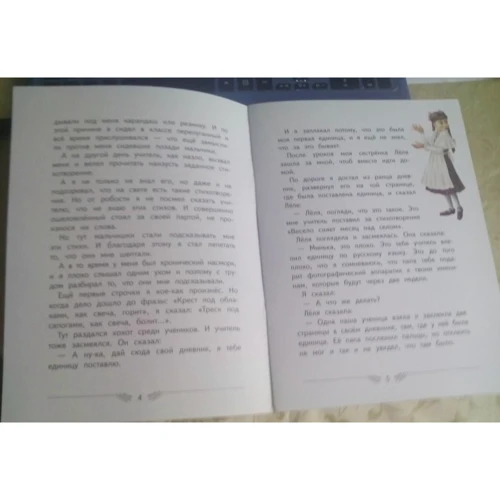 давали под меня карандаш или резинку. И по
этой причине я сидел в классе перепуганный и
всё время прислушивался — что ещё замысли-
ли против меня сидящие позади мальчики.
А на другой день учитель, как назло, вызвал
меня и велел прочитать наизусть заданное сти-
хотворение.
А я не только не знал его, но даже и не
подозревал, что на свете есть такие стихотворе-
ния. Но от робости я не посмел сказать учи-
телю, что не знаю этих стихов. И совершенно
ошеломлённый стоял за своей партой, не про-
износя ни слова.
Но тут мальчишки стали подсказывать мне
эти стихи. И благодаря этому я стал лепетать
то, что они мне шептали.
А в то время у меня был хронический насморк,
и я плохо слышал одним ухом и поэтому с тру-
дом разбирал то, что они мне подсказывали.
Ещё первые строчки я кое-как произнёс. Но
когда дело дошло до фразы: «Крест под обла-
ками, как свеча, горит», я сказал: «Треск под
сапогами, как свеча, болит...».
Тут раздался хохот среди учеников. И учитель
тоже засмеялся. Он сказал:
— А ну-ка, дай сюда свой дневник, я тебе
единицу поставлю.
4
И я заплакал потому, что это была
моя первая единица, и я ещё не знал,
что за это бывает.
После уроков моя сестрёнка Лёля
зашла за мной, чтоб вместе идти до-
мой.
По дороге я достал из ранца днев-
ник, развернул его на той странице,
где была поставлена единица, и сказал
Лёле:
— Лёля, погляди, что это такое. Это
мне учитель поставил за стихотворение
«Весело сияет месяц над селом».
Лёля поглядела и засмеялась. Она сказала:
— Минька, это плохо. Это тебе учитель вле-
пил единицу по русскому языку. Это до того
плохо, что я сомневаюсь, что папа тебе пода-
рит фотографический аппарат к твоим имени-
нам, которые будут через две недели.
Я сказал:
— А что же делать?
Лёля сказала:
— Одна наша ученица взяла и заклеила две
страницы в своём дневнике, там, где у неё была
единица. Её папа послюнил пальцы, но отклеить
не мог и так и не увидел, что там было.
5